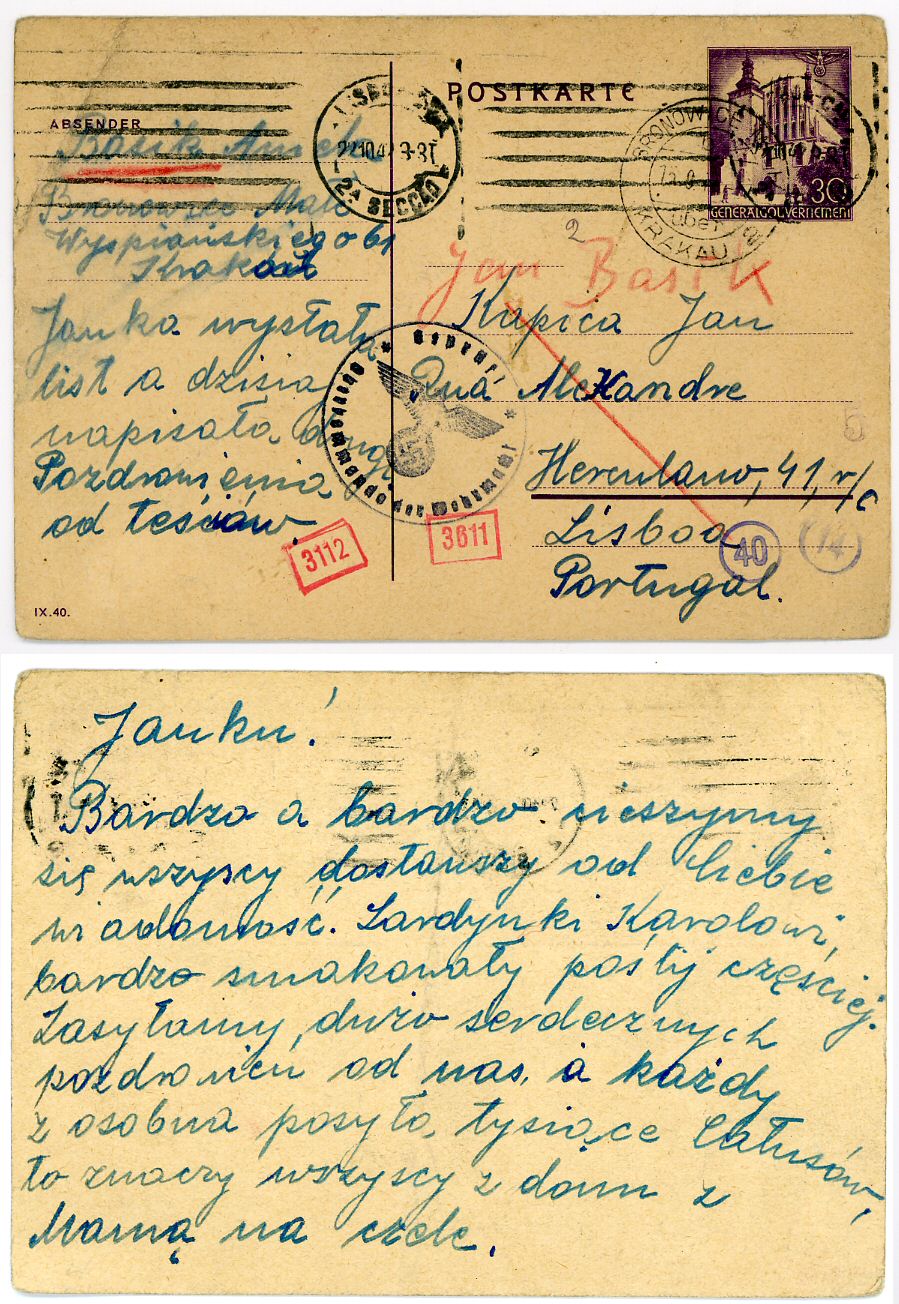 POSTKARTE
ABSENDER
Basik Aniela
Bronowice Małe
Wyspiańskiego 61
Krakau
Janka wysłała
list a dzisia
napisała drugi
Pozdrowienia
od teściów.
IX.40.
30
GENERALGOUVERNEMENT
BRONOWICE
über
KRAKAU
2A SECCAO
2
Jan Basik
Kapica Jan
Rua Alexandre
Herculano, 41, r/c
Lisboa
Portugal.
Oberkommando der Wehrmacht
Geprüft
3112
3611
40
14
Janku!
Bardzo a bardzo cieszymy
się wszyscy dostawszy od Ciebie
wiadomość. Sardynki Karolowi,
bardzo smakowały poślij częściej.
Zasyłamy dużo serdecznych
pozdrowień od nas, a każdy
z osobna posyła tysiące Całusów,
to znaczy wszyscy z domu z
Mamą na czele.